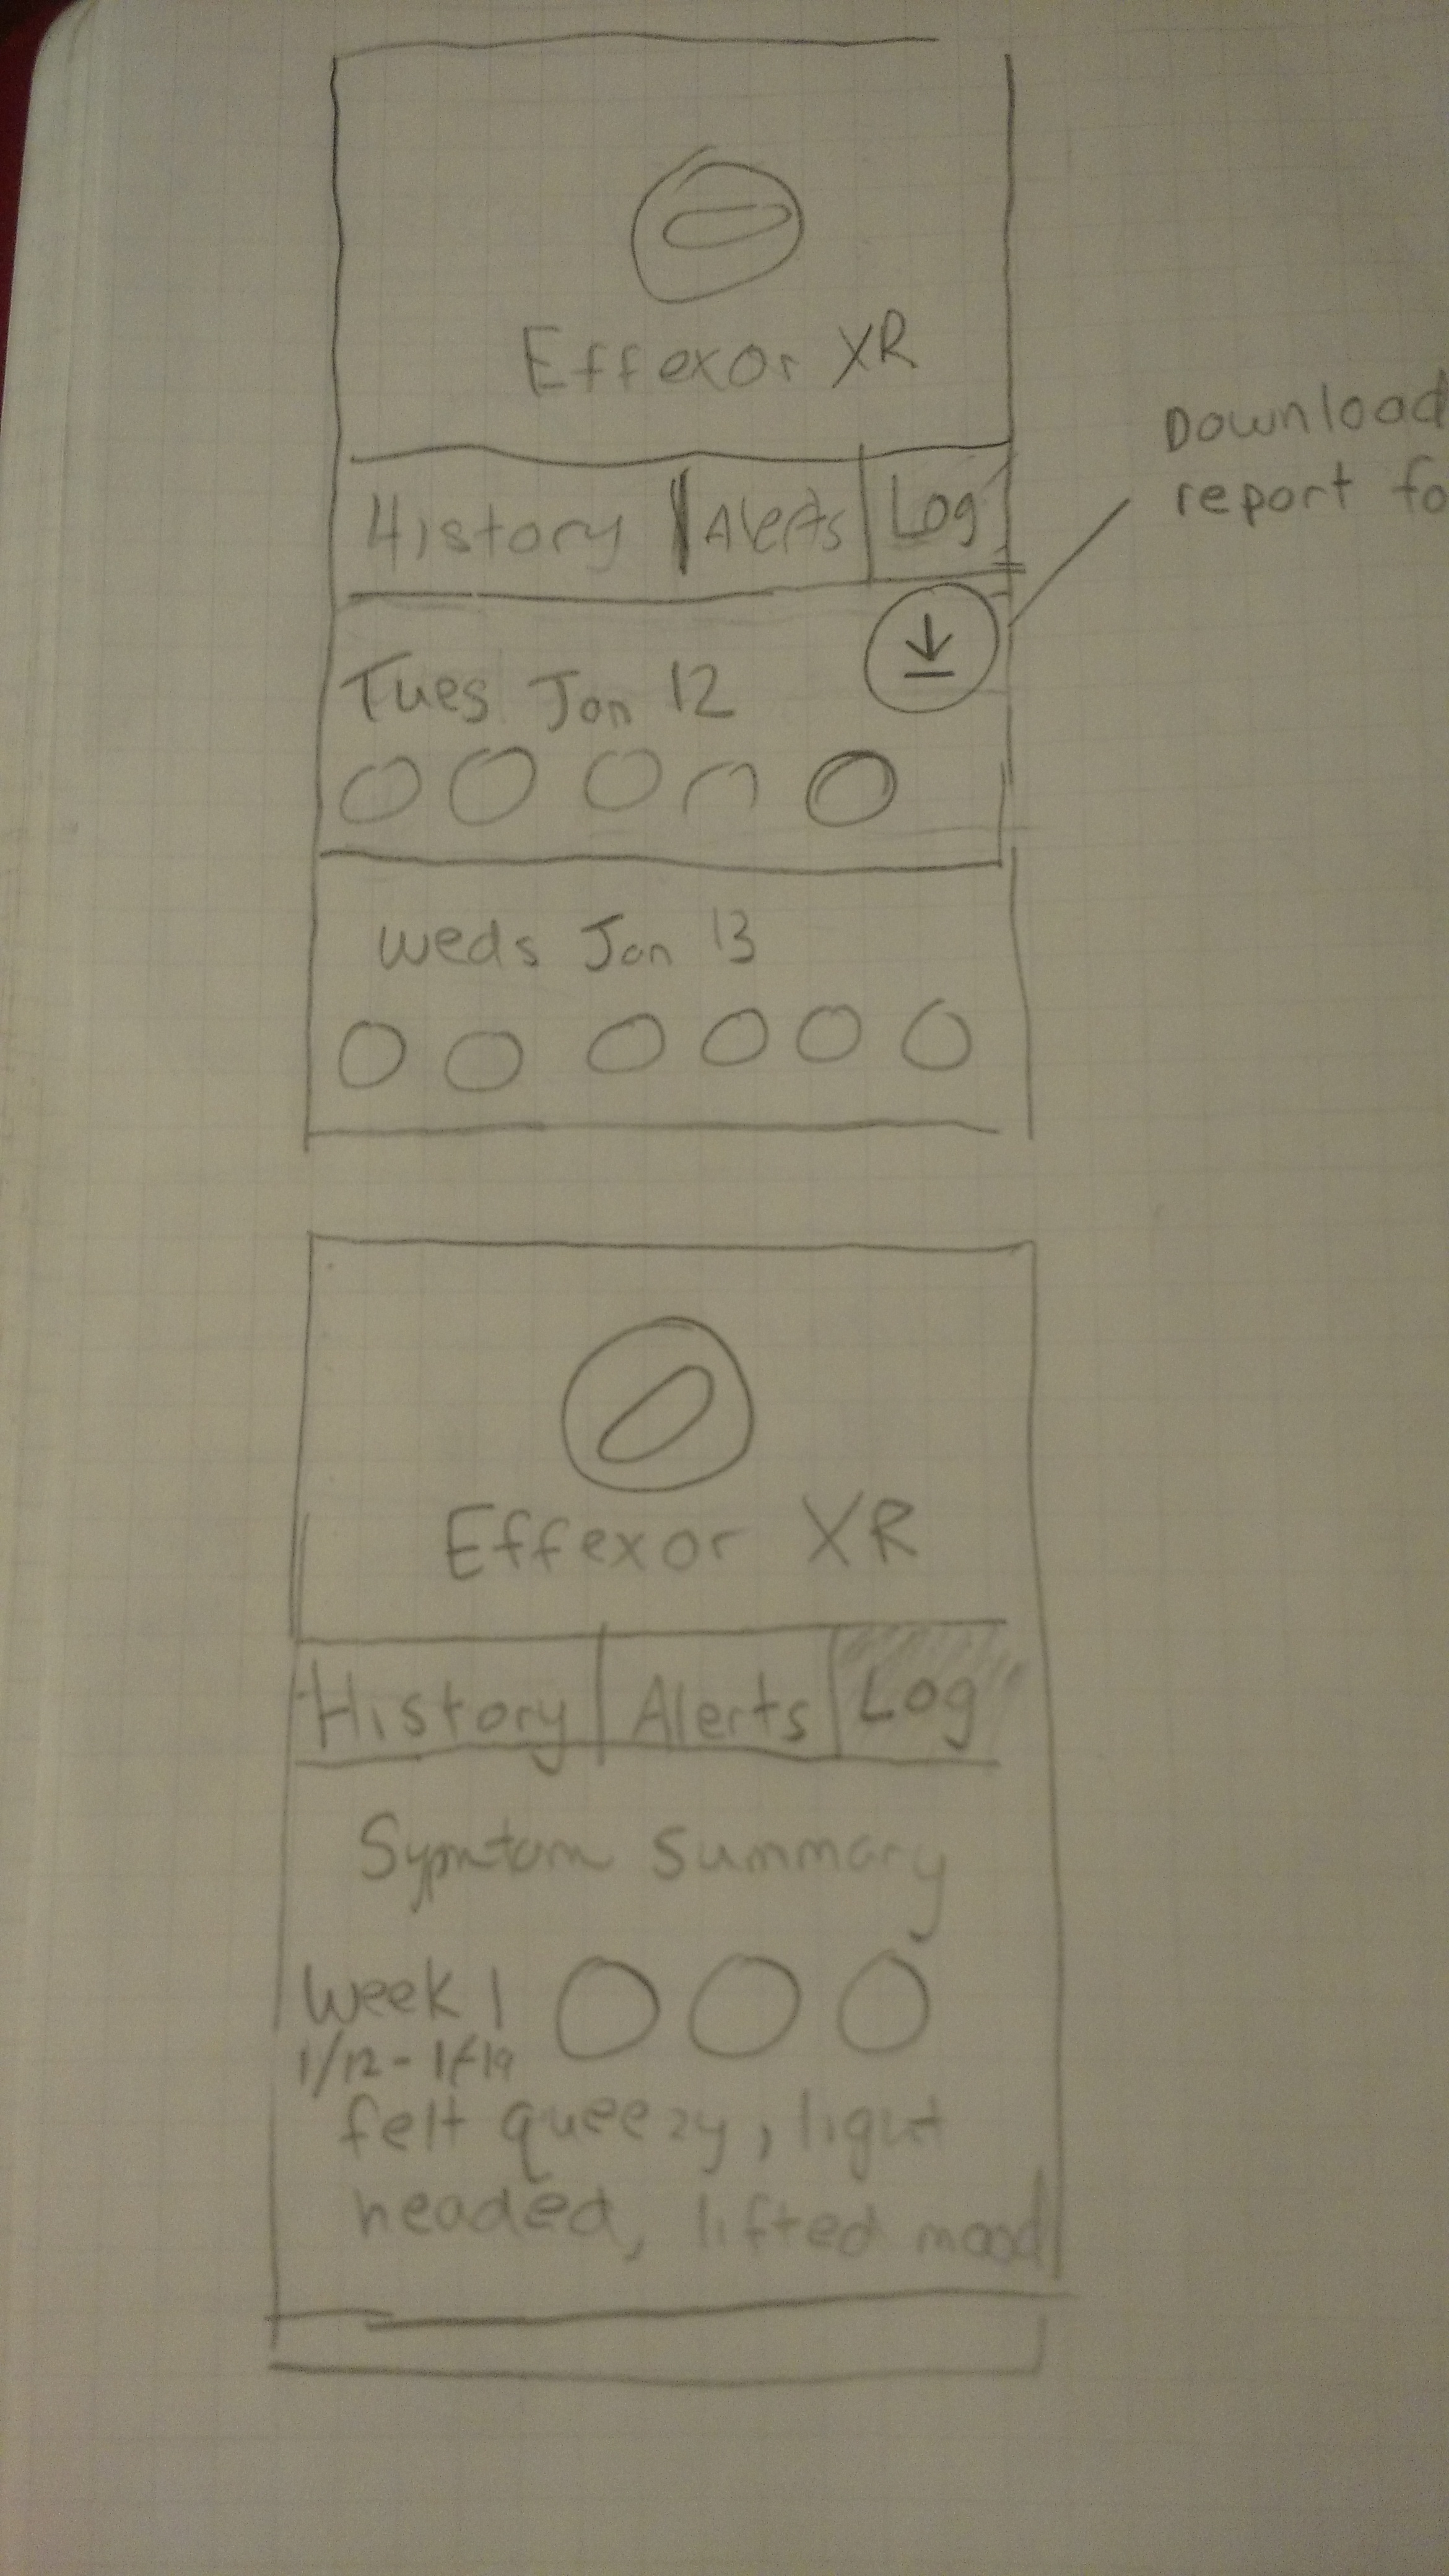 Effexor XR
Download
report fo
History Alerts Log
Tues Jan 12
Weds Jan 13
Effexor XR
History Alerts Log
Symtom Summary
Week 1
1/12 - 1/19
felt queezy, light
headed, lifted mood